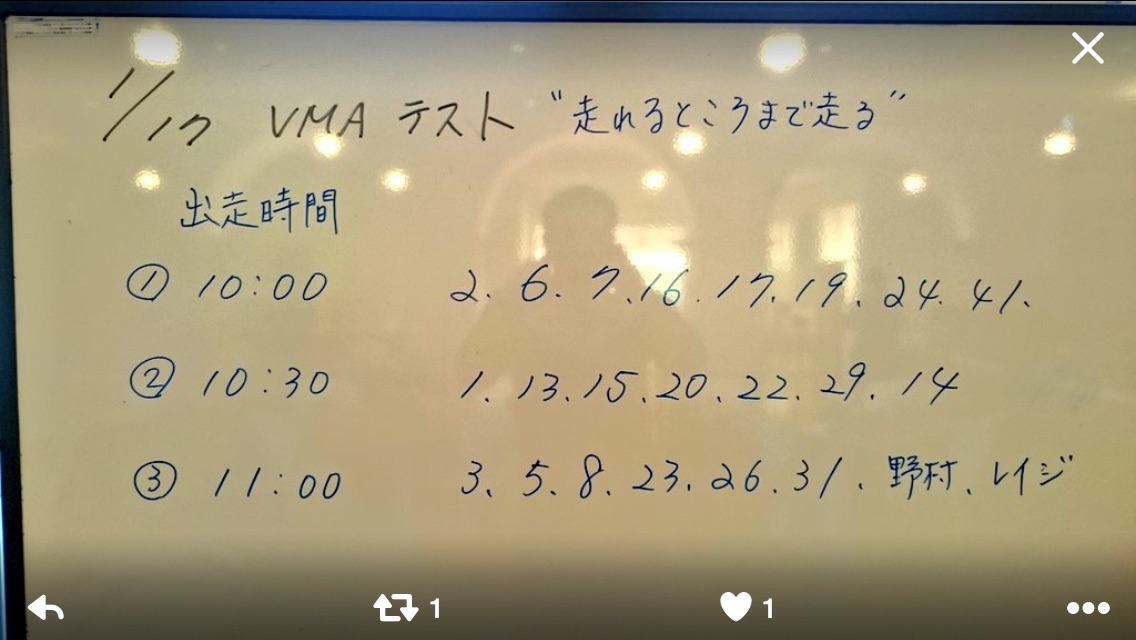 1/17 VMA テスト “走れるところまで走る”
出走時間
① 10:00 2. 6. 7. 16. 17. 19. 24. 41.
② 10:30 1. 13. 15. 20. 22. 29. 14
③ 11:00 3. 5. 8. 23. 26. 31. 野村. レイジ
1 1